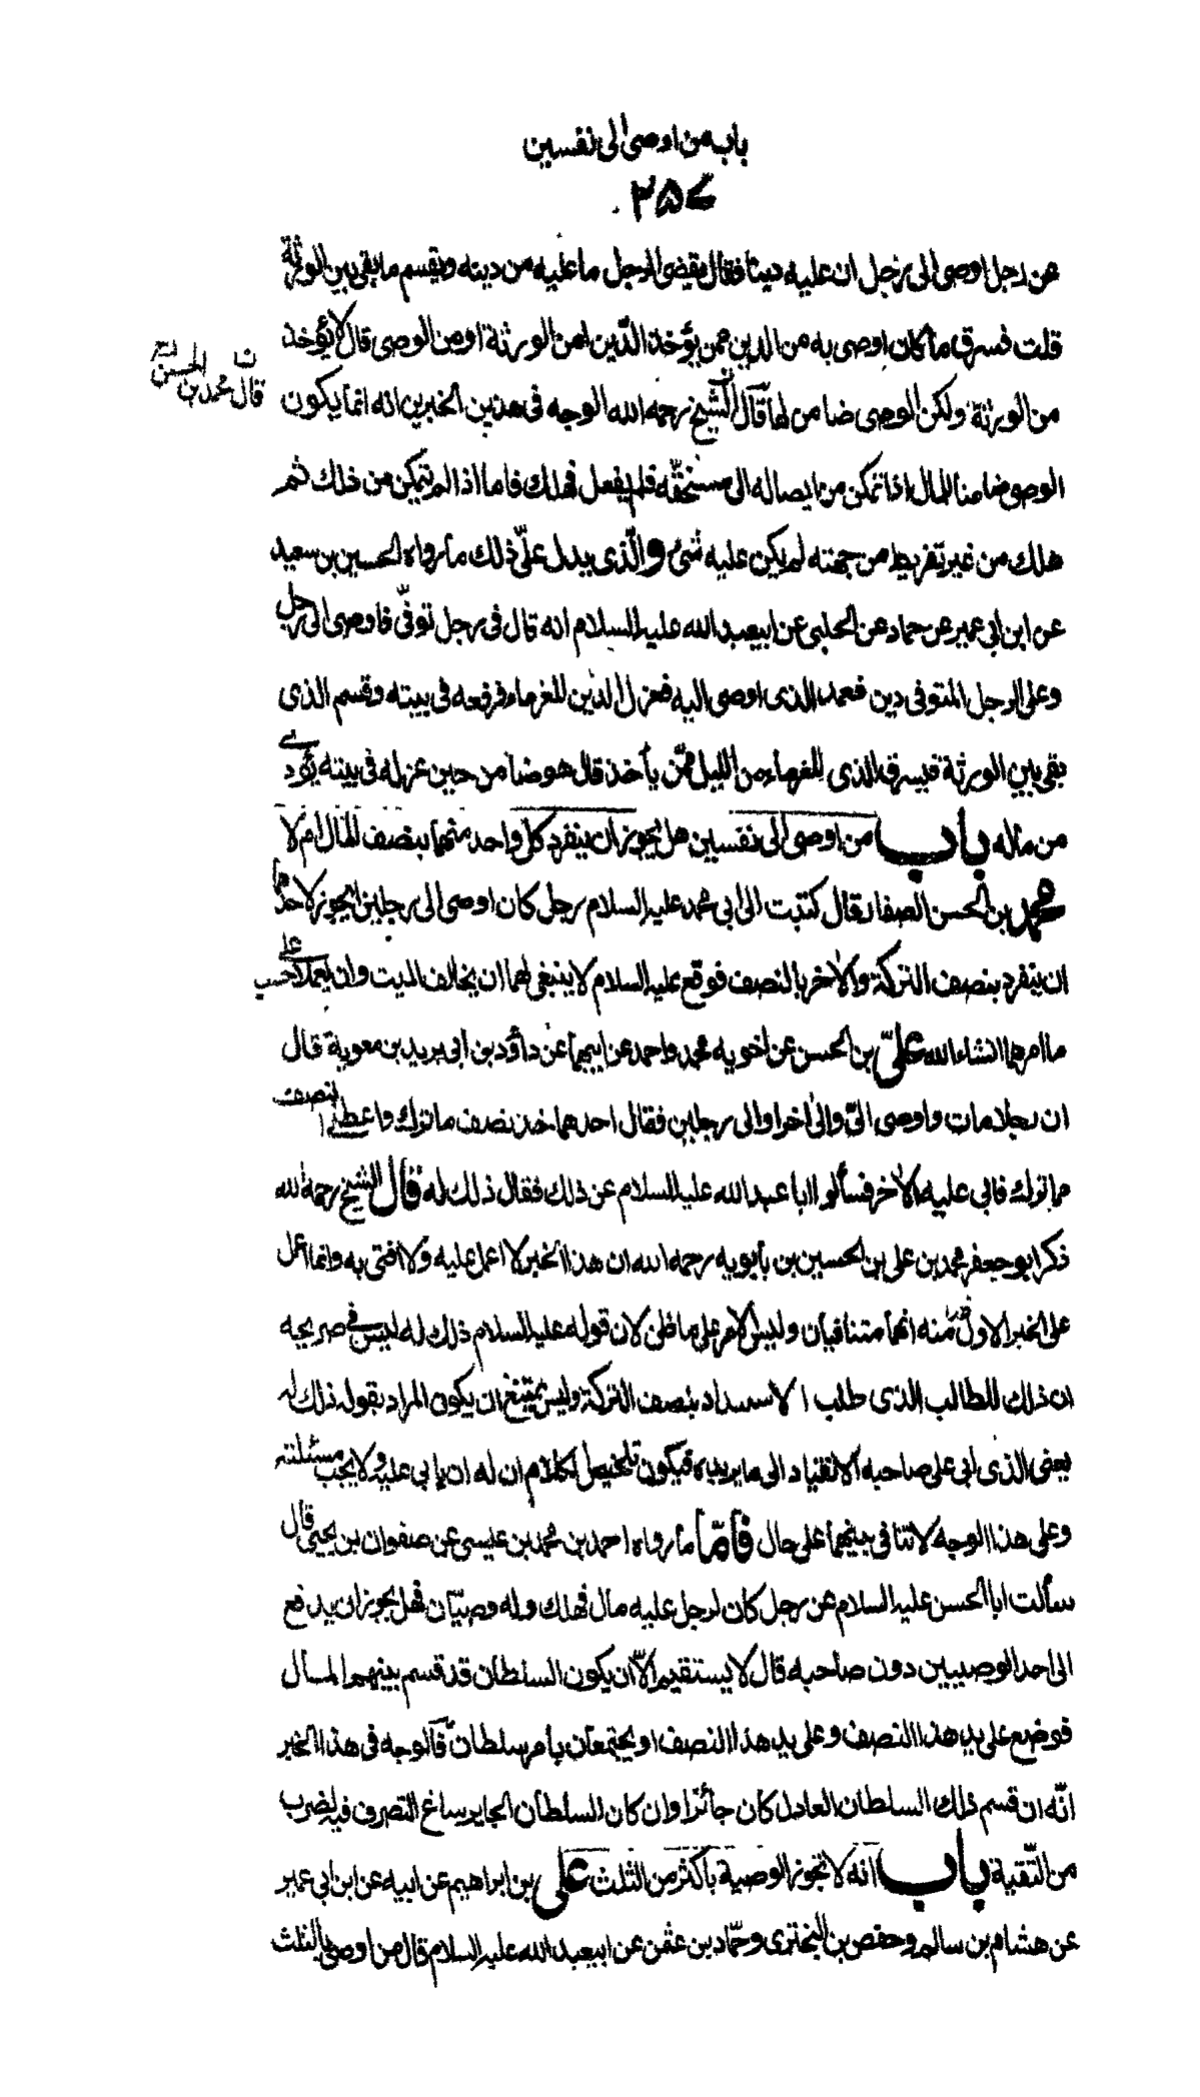 باب من اوصى الى نفسين
٢٥٧
عن رجل اوصى الى رجل ان عليه دينا فقال يقضى الرجل ما عليه من دينه ويقسم ما بقى بين الورثة
قلت فسرق ما كان اوصى به من الدين ممن يؤخذ الدّين امن الورثة او من الوصى قال لا يؤخذ
من الورثة ولكن الوصى ضامن لها قال الشيخ رحمه الله الوجه فى هذين الخبرين انه انما يكون
قال محمد بن الحسن
الوصى ضامنا للمال اذا تمكن من ايصاله الى مستحقّه فلم يفعل فهلك فاما اذا لم يتمكن من ذلك ثم
هلك من غير تفريط من جهته لم يكن عليه شئ والّذى يدل على ذلك ما رواه الحسين بن سعيد
عن ابن ابى عمير عن حماد عن الحلبى عن ابيعبد الله عليه السلام انه قال فى رجل توفّى فاوصى الى رجل
وعلى الرجل المتوفى دين فعمد الذى اوصى اليه فعزل الدين للغرماء فرفعه فى بيته وقسم الذى
بقى بين الورثة فيسرق الذى للغرماء من الليل ممّن يأخذ قال هو ضامن حين عزله فى بيته يؤدى
من ماله باب من اوصى الى نفسين هل يجوز ان ينفرد كل واحد منهما بنصف المال ام لا
محمد بن الحسن الصفار قال كتبت الى ابى محمد عليه السلام رجل كان اوصى الى رجلين ايجوز لاحدهما
ان ينفرد بنصف التركة والاخر بالنصف فوقع عليه السلام لا ينبغى لهما ان يخالف الميت وان يعملا على حسب
ما امرهما انشاء الله علىّ بن الحسن عن اخويه محمد واحمد عن ابيهما عن داود بن ابى يزيد بن معوية قال
ان رجلا مات واوصى الىّ والى اخر او الى رجلين فقال احدهما خذ نصف ما ترك واعطنى النصف
مما ترك فابى عليه الاخر فسألوا ابا عبد الله عليه السلام عن ذلك فقال ذلك له قال الشيخ رحمه الله
ذكر ابو جعفر محمد بن على بن الحسين بن بابويه رحمه الله ان هذا الخبر لا اعمل عليه ولا افتى به وانما اعمل
على الخبر الاول ظنا منه انهما متنافيان وليس الامر على ما ظن لان قوله عليه السلام ذلك له ليس فى صريحه
ان ذلك للطالب الذى طلب الاستبداد بنصف التركة وليس يمتنع ان يكون المراد بقوله ذلك له
يعنى الذى ابى على صاحبه الانقياد الى ما يريده فيكون تلخيص الكلام ان له ان يابى عليه ولا يجب مسئلته
وعلى هذا الوجه لا تنافى بينهما على حال فامّا ما رواه احمد بن محمد بن عيسى عن صفوان بن يحيى قال
سألت ابا الحسن عليه السلام عن رجل كان لرجل عليه مال فهلك وله وصيّان فهل يجوز ان يدفع
الى احد الوصيين دون صاحبه قال لا يستقيم الاّ ان يكون السلطان قد قسم بينهم المال
فوضع على يد هذا النصف وعلى يد هذا النصف او يجتمعان بامر سلطان فالوجه فى هذا الخبر
انّه ان قسم ذلك السلطان العادل كان جائزا وان كان السلطان الجاير ساغ التصرف فيه لضرب
من التّقية باب انه لا تجوز الوصية باكثر من الثلث على بن ابراهيم عن ابيه عن ابن ابى عمير
عن هشام بن سالم وحفص بن البخترى وحمّاد بن عثمن عن ابيعبد الله عليه السلام قال من اوصى بالثلث